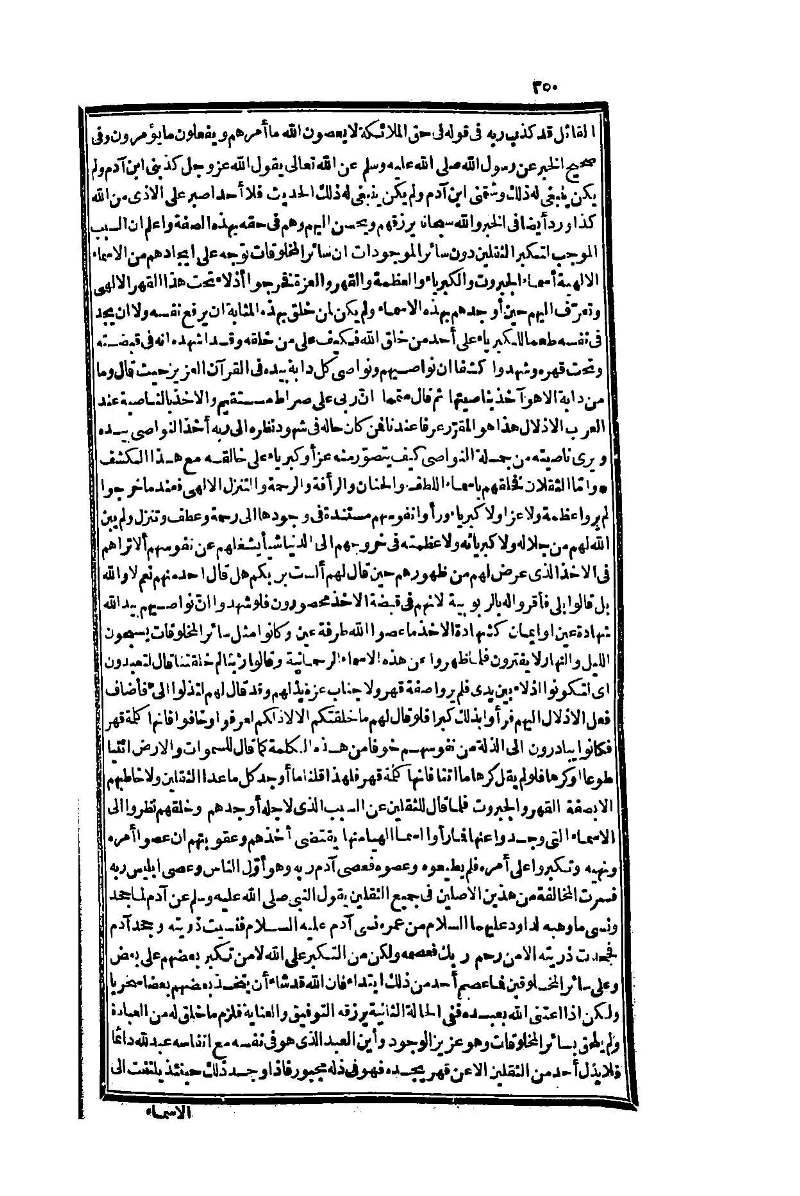 ٣٥٠
القائل قد كذب ربه فى قوله فى حق الملائكة لا يعصون الله ما أمرهم ويفعلون ما يؤمرون وفى
صحيح الخبر عن رسول الله صلى الله عليه وسلم عن الله تعالى يقول الله عز وجل كذبنى ابن آدم ولم
يكن ينبغى له ذلك وشتمنى ابن آدم ولم يكن ينبغى له ذلك الحديث فلا أحد اصبر على الاذى من الله
كذا ورد أيضا فى الخبر والله سبحانه يرزقهم ويحسن اليهم وهم فى حقه بهذه الصفة واعلم ان السبب
الموجب لتكبر الثقلين دون سائر الموجودات ان سائر المخلوقات توجه على ايجادهم من الاسماء
الالهية أسماء الجبروت والكبرياء والعظمة والقهر والعزة فخرجوا أذلاء تحت هذا القهر الالهى
وتعرّف اليهم حين أوجدهم بهذه الاسماء ولم يكن لمن خلق بهذه المثابة ان يرفع نفسه ولا ان يجد
فى نفسه طعما للكبرياء على أحد من خلق الله فكيف على من خلقه وقد اشهده انه فى قبضته
وتحت قهره وشهدوا كشفا ان نواصيهم ونواصى كل دابة بيده فى القرآن العزيز حيث قال وما
من دابة الا هو آخذ بناصيتها ثم قال متمما ان ربى على صراط مستقيم والاخذ بالناصية عند
العرب الاذلال هذا هو المقرّر عرفا عندنا فمن كان حاله فى شهود نظره الى ربه أخذ النواصى بيده
ويرى ناصيته من جملة النواصى كيف يتصوّر منه عز أو كبرياء على خالقه مع هذا الكشف
وامّا الثقلان فخلقهم باسماء اللطف والحنان والرأفة والرحمة والتنزل الالهى فعند ما خرجوا
لم يروا عظمة ولا عزا ولا كبرياء ورأوا نفوسهم مستندة فى وجودها الى رحمة وعطف وتنزل ولم يبن
الله لهم من جلاله ولا كبريائه ولا عظمته فى خروجهم الى الدنيا شيأ يشغلهم عن نفوسهم ألا تراهم
فى الاخذ الذى عرض لهم من ظهورهم حين قال لهم ألست بربكم هل قال احد منهم نعم لا والله
بل قالوا بلى فأقروا له بالربوبية لانهم فى قبضة الاخذ محصورون فلو شهدوا انّ نواصيهم بيد الله
شهادة عين او ايمان كشهادة الاخذ ما عصوا الله طرفة عين وكانوا مثل سائر المخلوقات يسبحون
الليل والنهار لا يفترون فلما ظهروا عن هذه الاسماء الرحمانية وقالوا ربنا لم خلقتنا قال لتعبدون
اى لتكونوا اذلاء بين يدى فلم يروا صفة قهر ولا جناب عز فيذلهم وقد قال لهم لتذلوا الىّ فأضاف
فعل الاذلال اليهم فرأوا بذلك كبرا فلو قال لهم ما خلقتكم الا لاذلكم لعرفوا وخافوا فانها كلمة قهر
فكانوا يبادرون الى الذلة من نفوسهم خوفا من هذه الكلمة كما قال للسموات والارض ائتيا
طوعا او كرها فلو لم يقل كرها ما اتتا فانها كلمة قهر فلهذا قلنا ما أوجد كل ما عدا الثقلين ولا خاطبهم
الا بصفة القهر والجبروت فلما قال للثقلين عن السبب الذى لاجله أوجدهم وخلقهم نظروا الى
الاسماء التى وجدوا عنها فما رأوا اسما الهيا منها يقتضى أخذهم وعقوبتهم ان عصوا أمره
ونهيه وتكبروا على أمره فلم يطيعوه وعصوه فعصى آدم ربه وهو أوّل الناس وعصى ابليس ربه
فسرت المخالفة من هذين الاصلين فى جميع الثقلين يقول النبى صلى الله عليه وسلم عن آدم لما جحد
ونسى ما وهبه لداود عليهما السلام من عمره نسى آدم عليه السلام فنسيت ذريته وجحد آدم
فجحدت ذريته الا من رحم ربك فعصمه ولكن من التكبر على الله لا من تكبر بعضهم على بعض
وعلى سائر المخلوقين فما عصم أحد من ذلك ابتداء فان الله قد شاء أن يتخذ بعضهم بعضا سخريا
ولكن اذا اعتنى الله بعبده ففى الحالة الثانية يرزقه التوفيق والعناية فلزم ما خلق له من العبادة
ولم يلحق بسائر المخلوقات وهو عزيز الوجود وأين العبد الذى هو فى نفسه مع انفاسه عبد لله دائما
فلا يذل أحد من الثقلين الا عن قهر يجده فهو فى ذله مجبور فاذا وجد ذلك حينئذ يلتفت الى
الاسماء